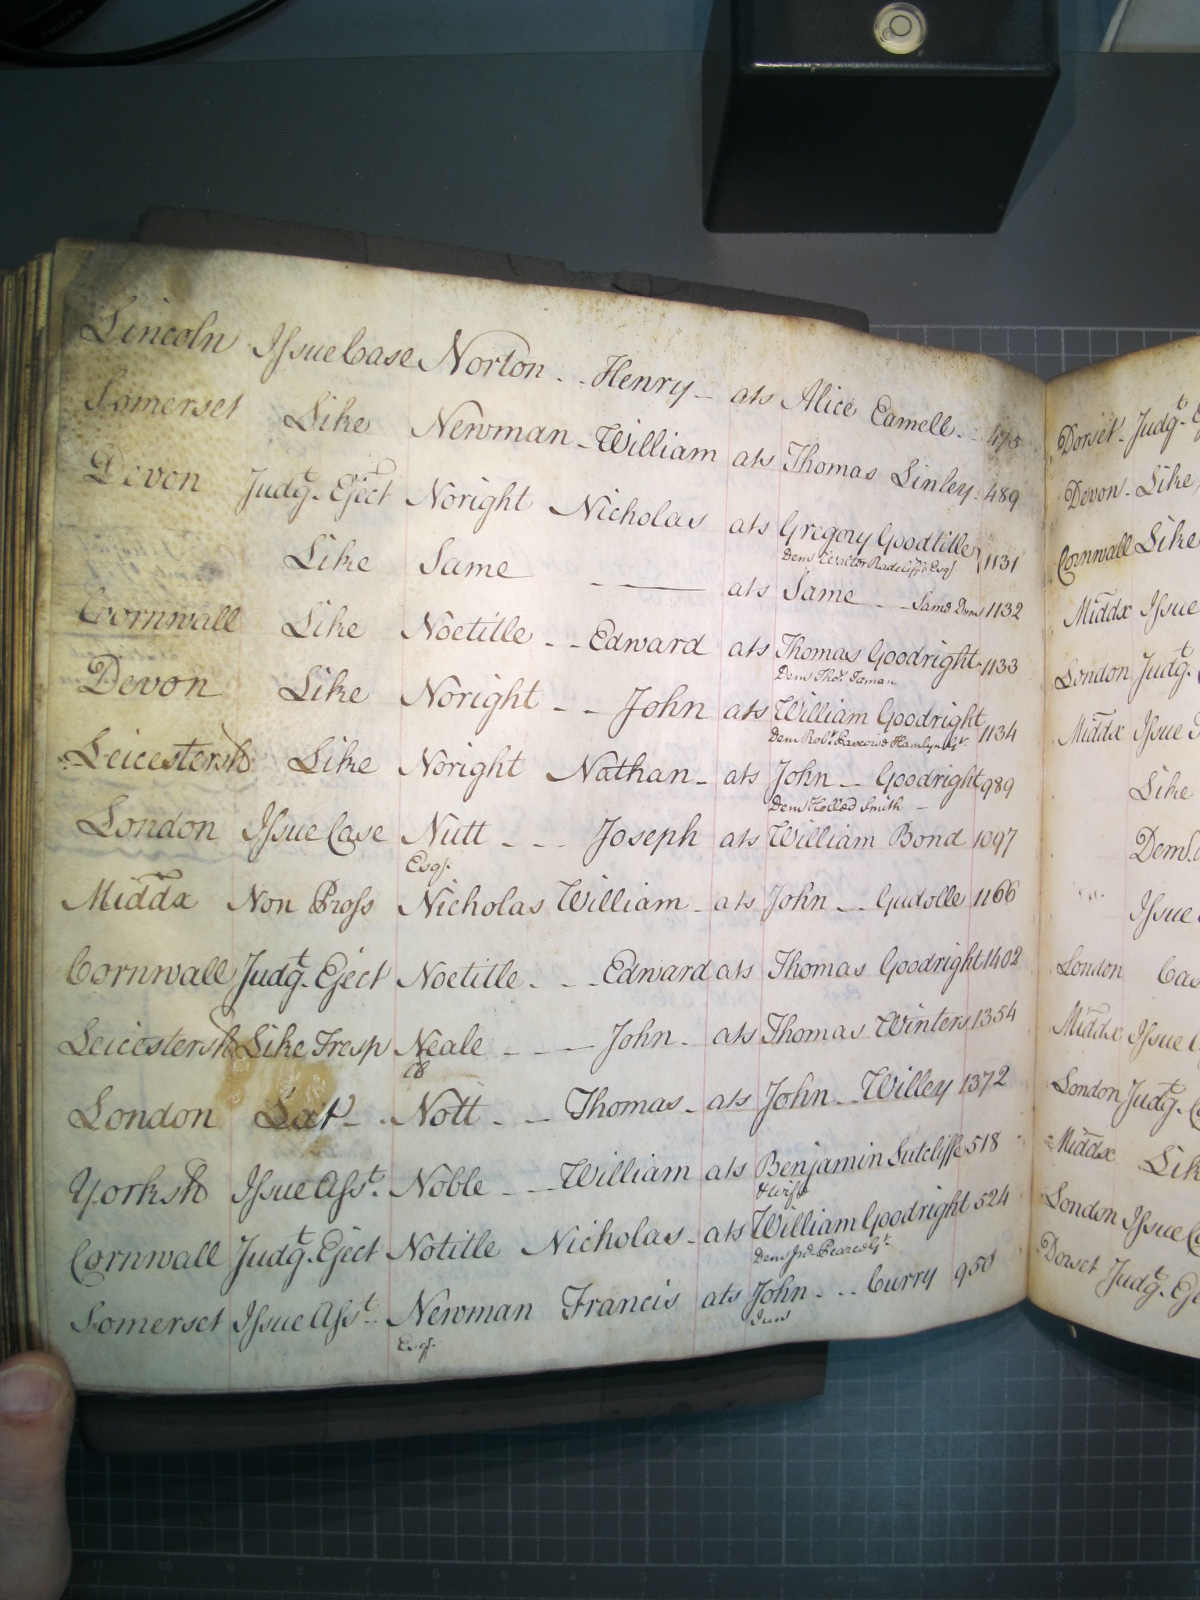 Lincoln Issue Case Norton - - Henry - ats Alice Camell - 475
Somerset Like Newman - William ats Thomas Linley - 489
Devon Judgt. Eject Noright Nicholas ats Gregory Goodtitle 1131
Dem Walter Radcliffe Esqr
Like Same ——— ats Same - - Same Dem 1132
Cornwall Like Noetitle - - Edward ats Thomas Goodright 1133
Dem Thos.
Devon Like Noright - - John ats William Goodright 1134
Dem Robt. Hamlyn
Leicestersh Like Noright Nathan - ats John - - Goodright 989
Dem Smith -
London Issue Case Nutt - - - Joseph ats William Bond 1097
Esqr.
Middx Non Pross Nicholas William - ats John - - Gudolle 1166
Cornwall Judgt. Eject Noetitle - - - Edward ats Thomas Goodright 1402
Leicestersh Like Tresp Neale - - - John - ats Thomas Winters 1354
London - Nott - - - Thomas - ats John - - Willey 1372
Yorksh Issue Asst. Noble - - - William ats Benjamin Sutcliffe 518
& wife
Cornwall Judgt. Eject Notitle Nicholas - ats William Goodright 524
Dem Jno.
Somerset Issue Asst. Newman Francis ats John - - - Curry 950
Esqr. Junr
Dorset - Judgt.
Devon - Like
Cornwall Like
Middx Issue
London Judgt.
Middx Issue
Like
Dem
Issue
London Cas
Middx Issue
London Judgt.
Middx Lik
London Issue
Dorset Judgt.